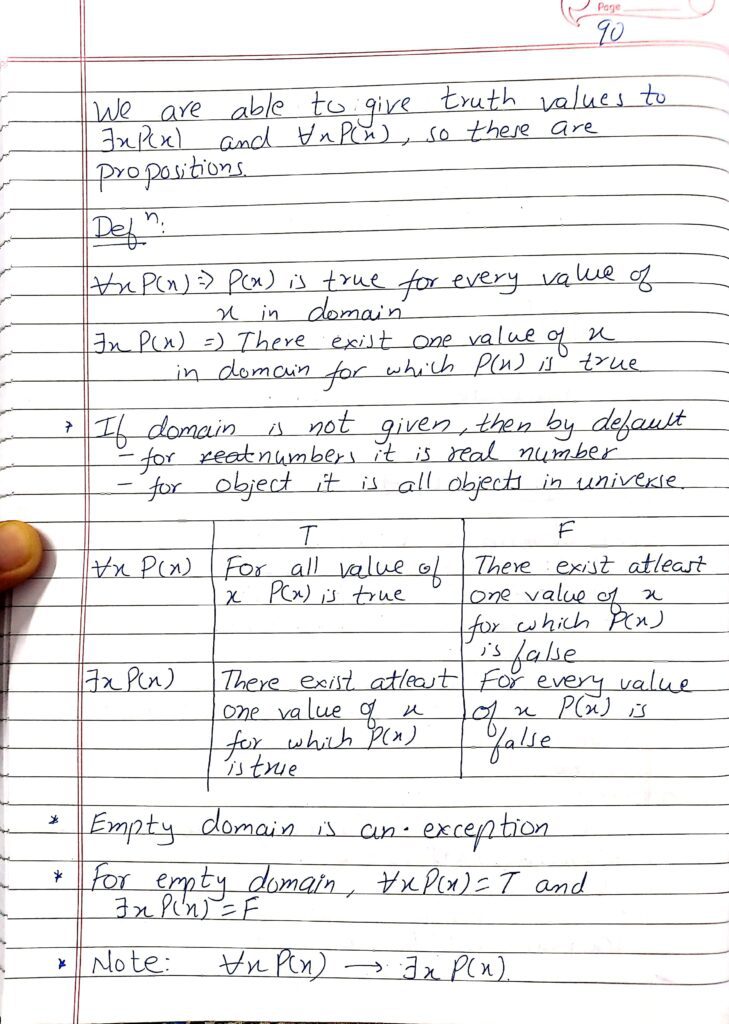 Page
90
We are able to give truth values to
∃xP(x) and ∀xP(x), so these are
propositions.
Defⁿ:
∀x P(x) => P(x) is true for every value of
x in domain
∃x P(x) => There exist one value of x
in domain for which P(x) is true
* If domain is not given, then by default
- for real numbers it is real number
- for object it is all objects in universe.
T F
∀x P(x) For all value of There exist atleast
x P(x) is true one value of x
for which P(x)
is false
∃x P(x) There exist atleast For every value
one value of x of x P(x) is
for which P(x) false
is true
* Empty domain is an exception
* For empty domain, ∀xP(x) = T and
∃x P(x) = F
* Note: ∀x P(x) → ∃x P(x).